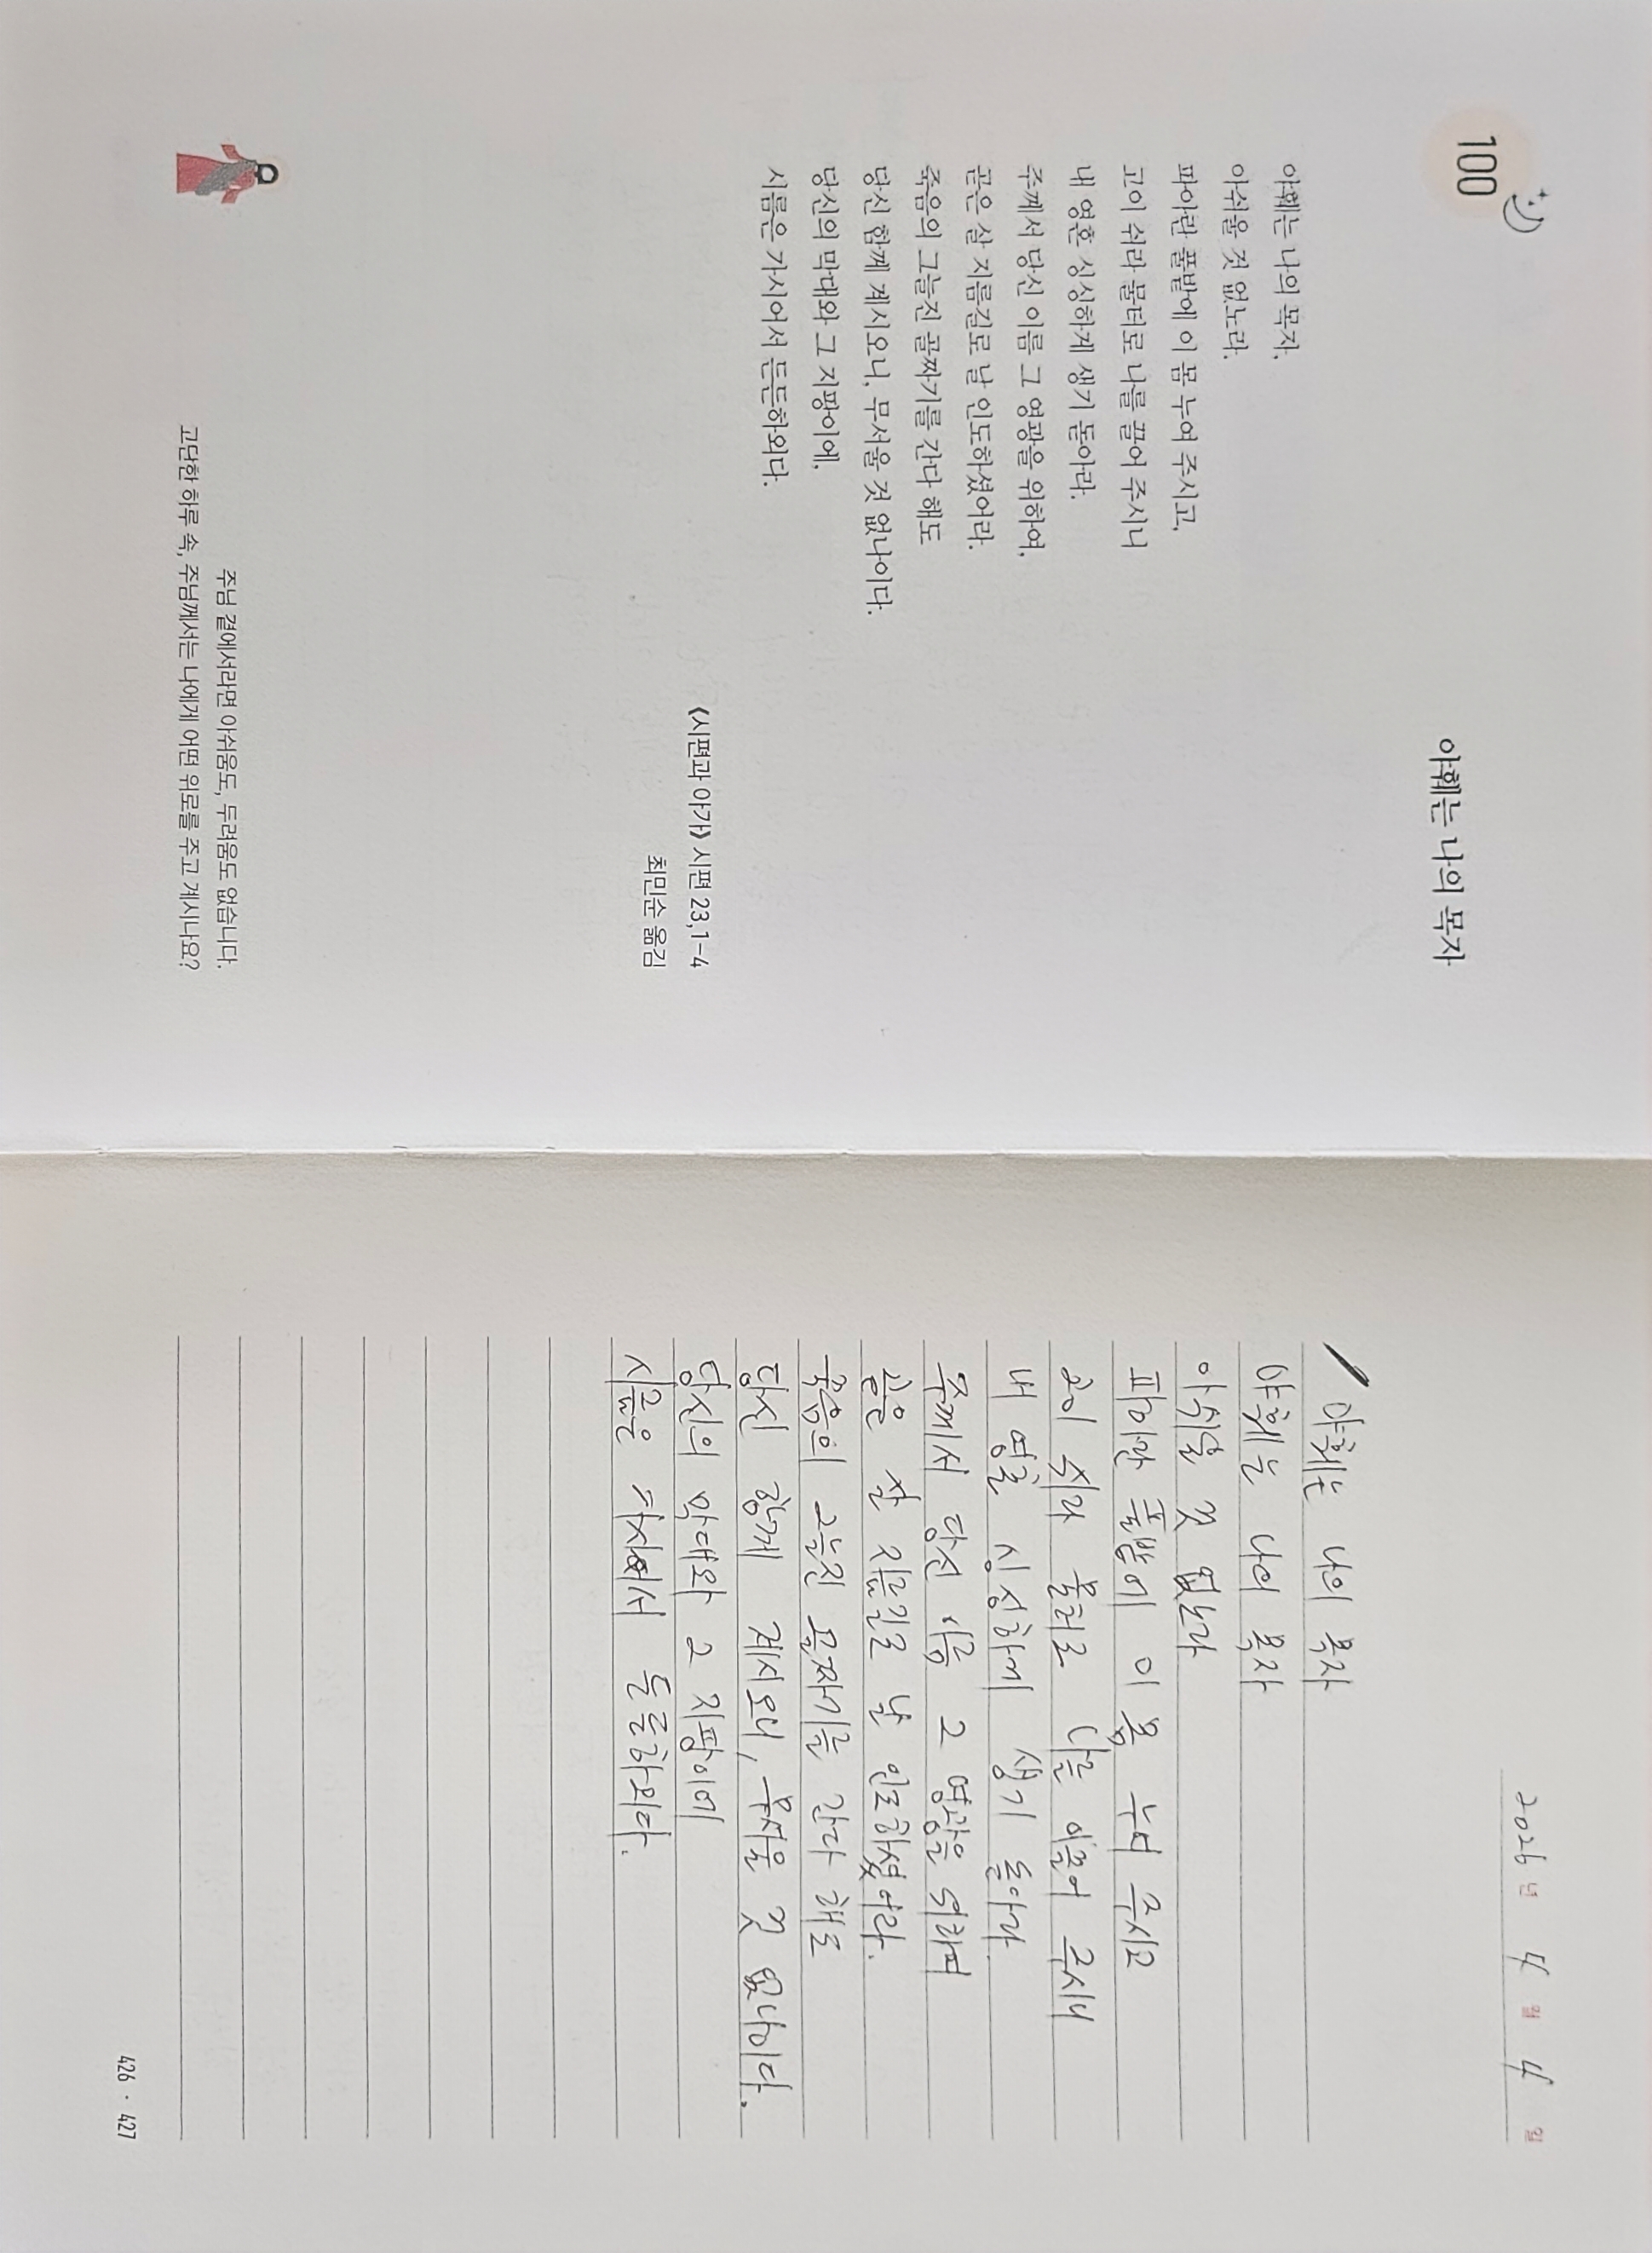 100
야훼는 나의 목자
야훼는 나의 목자,
아쉬울 것 없노라.
파아란 풀밭에 이 몸 누여 주시고,
고이 쉬라 물터로 나를 끌어 주시니
내 영혼 싱싱하게 생기 돋아라.
주께서 당신 이름 그 영광을 위하여,
곧은 살 지름길로 날 인도하셨어라.
죽음의 그늘진 골짜기를 간다 해도
당신 함께 계시오니, 무서울 것 없나이다.
당신의 막대와 그 지팡이에,
시름은 가시어서 든든하외다.
《시편과 아가》 시편 23,1-4
최민순 옮김
주님 곁에서라면 아쉬움도, 두려움도 없습니다.
고단한 하루 속, 주님께서는 나에게 어떤 위로를 주고 계시나요?
2026 년 4 월 4 일
야훼는 나의 목자
야훼는 나의 목자
아쉬울 것 없노라
파아란 풀밭에 이 몸 누여 주시고
고이 쉬라 물터로 나를 이끌어 주시니
내 영혼 싱싱하게 생기 돋아라
주께서 당신 이름 그 영광을 위하여
곧은 살 지름길로 날 인도하셨어라.
죽음의 그늘진 골짜기를 간다 해도
당신 함께 계시오니, 무서울 것 없나이다.
당신의 막대와 그 지팡이에
시름은 가시어서 든든하외다.
426 · 427